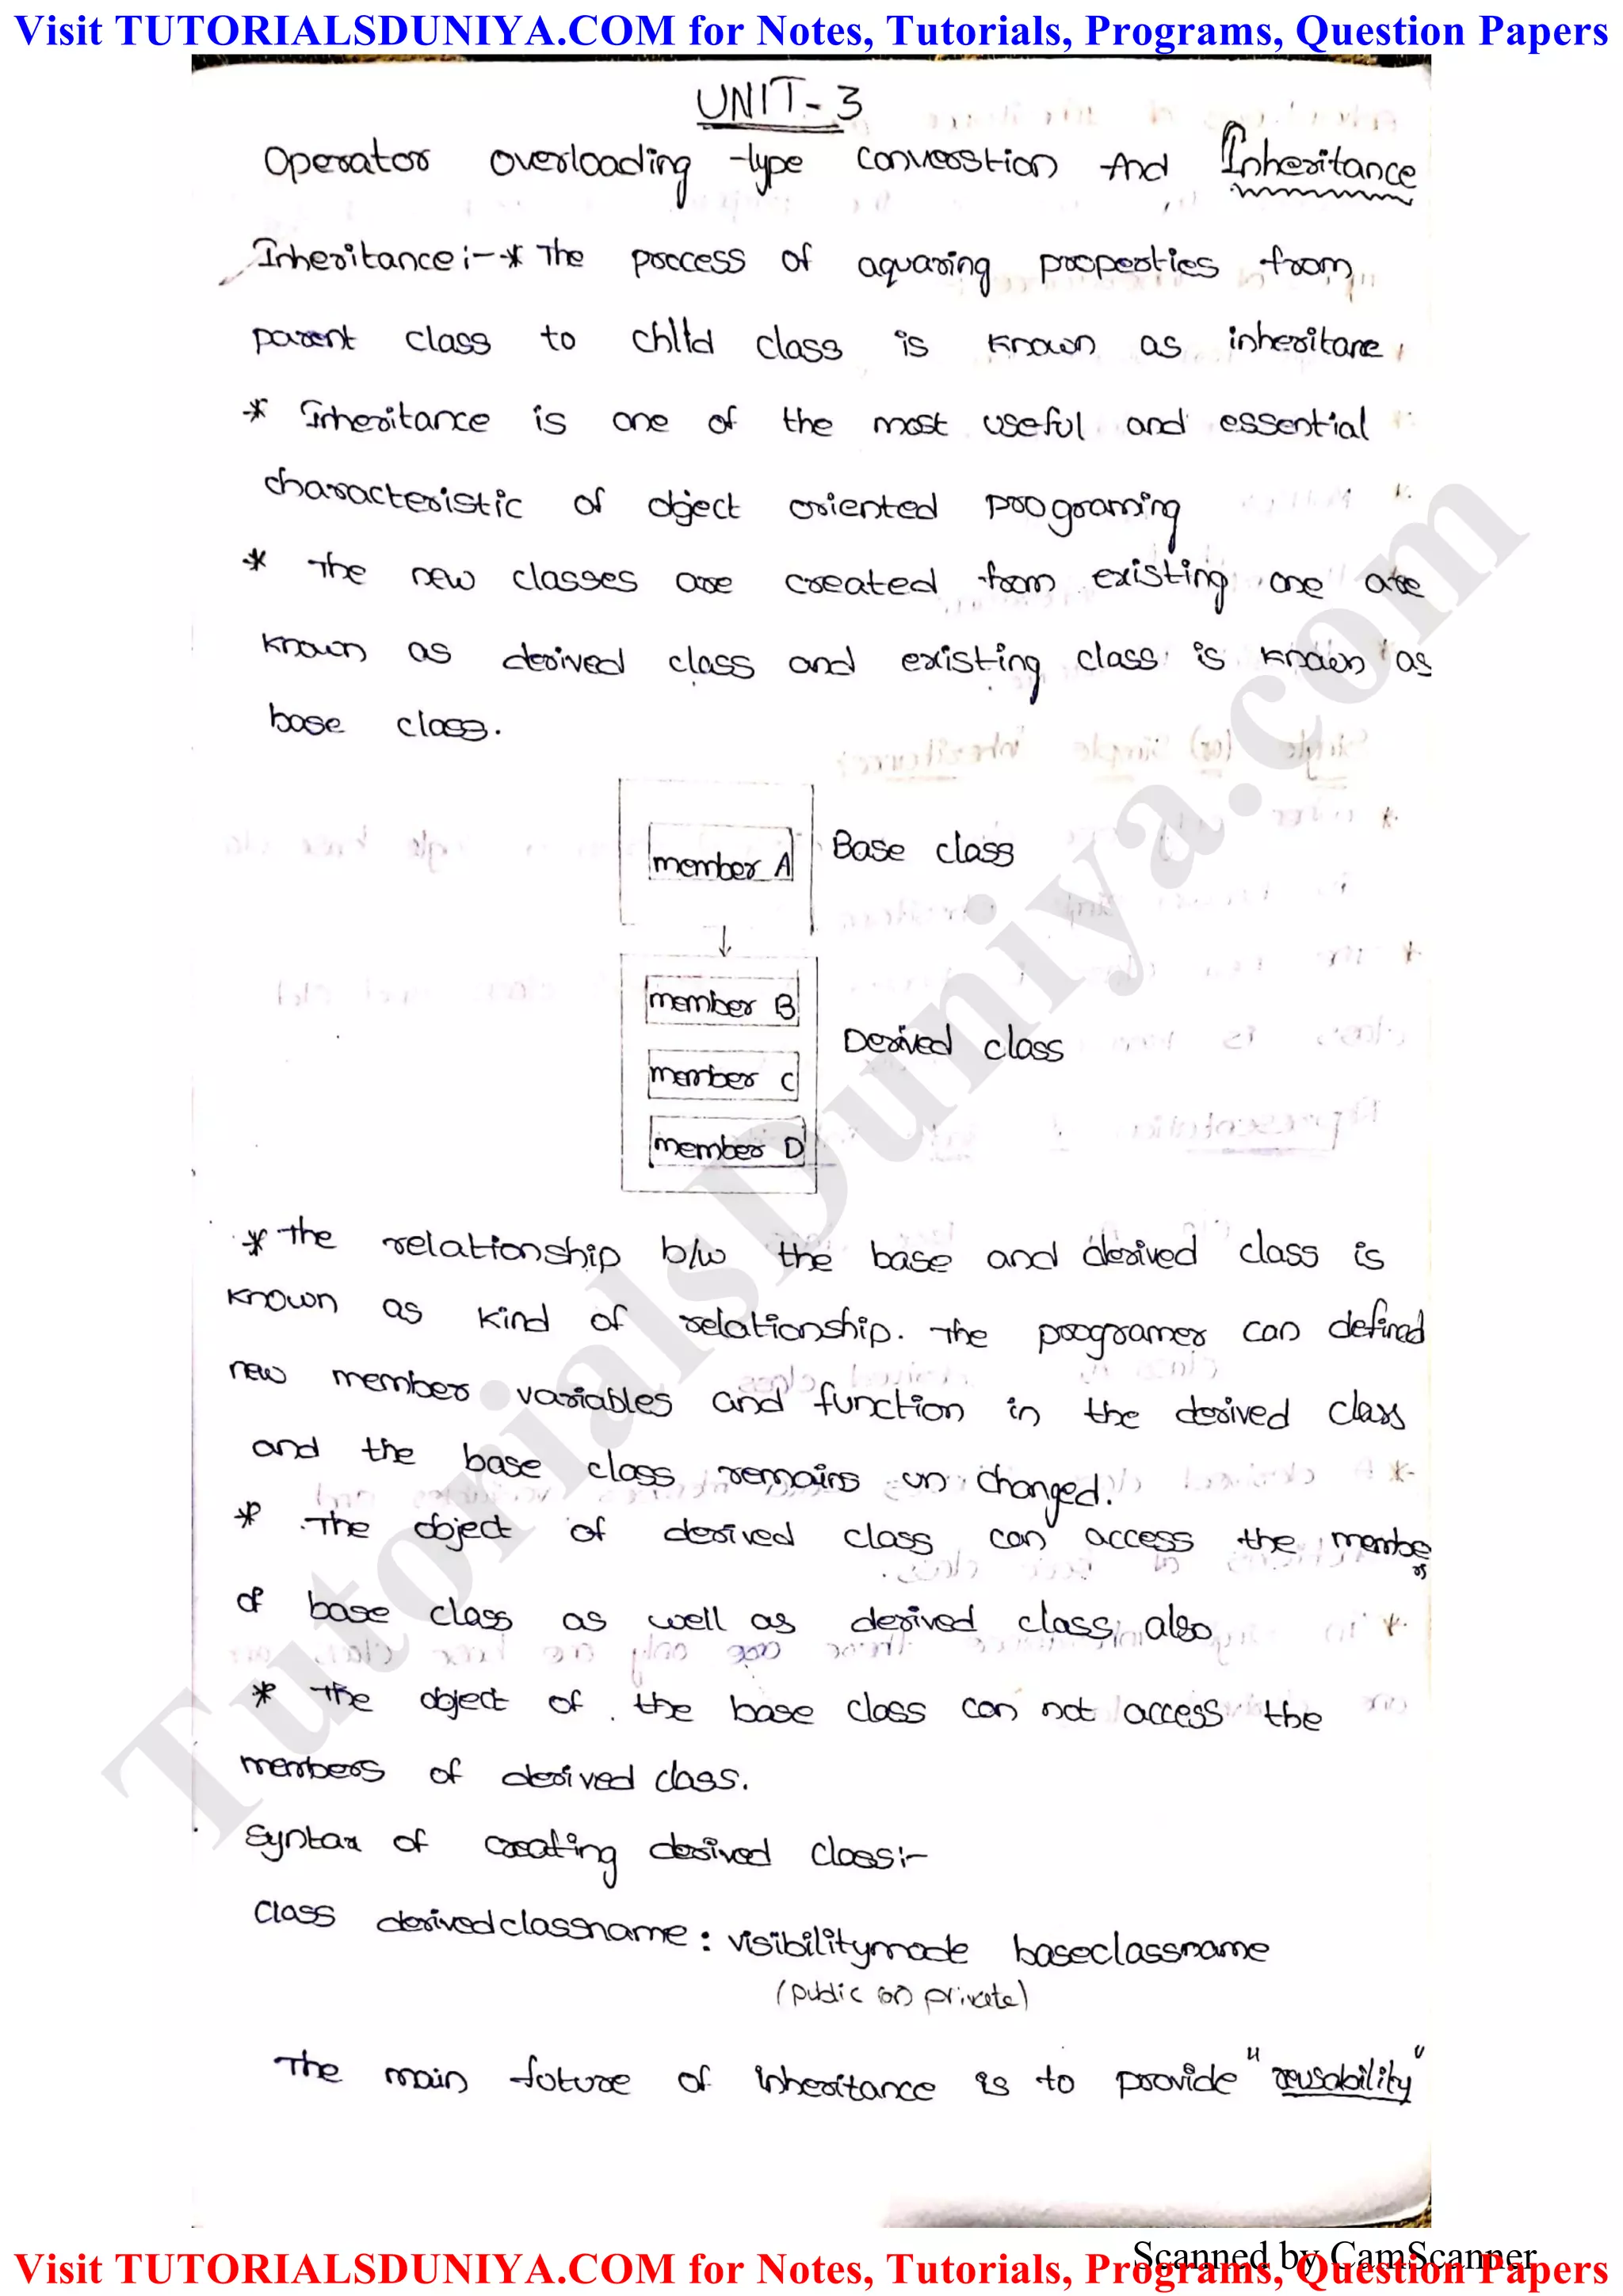 Visit TUTORIALSDUNIYA.COM for Notes, Tutorials, Programs, Question Papers
UNIT-3
Operator overloading type converstion And Inheritance
Inheritance:-* The proccess of aquaring properties from
parent class to child class is known as inheritane
* Inheritance is one of the most useful and essential
characteristic of object oriented programing
* The new classes are created from existing one are
known as derived class and existing class is known as
base class.
member A
Base class
member B
Derived class
member C
member D
* The relationship b/w the base and derived class is
known as kind of relationship. The programer can defined
new member variables and function in the derived class
and the base class remains un changed.
* The object of derived class can access the members
of base class as well as derived class also
* The object of the base class can not access the
members of derived class.
Syntax of creating derived class:-
Class derivedclassname: visibilitymode baseclassname
(public (or) private)
The main future of inheritance is to provide "reusability"
TutorialsDuniya.com
Scanned by CamScanner
Visit TUTORIALSDUNIYA.COM for Notes, Tutorials, Programs, Question Papers